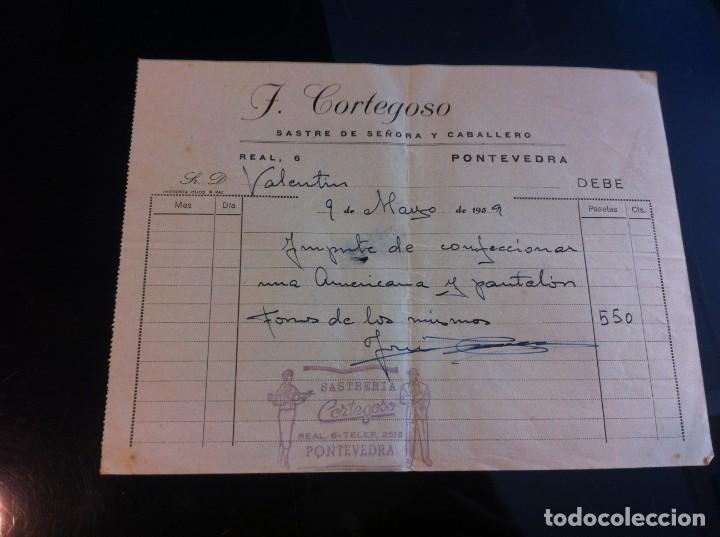 J. Cortegoso
SASTRE DE SEÑORA Y CABALLERO
REAL, 6 PONTEVEDRA
Sr. D. Valentin DEBE
Mes Día 9 de Marzo de 1959 Pesetas Cts.
Importe de confeccionar
una Americana y pantalón
Forros de los mismos 550
SASTRERIA
Cortegoso
REAL, 6-TELEF, 2518
PONTEVEDRA
todocoleccion
todocoleccion.net